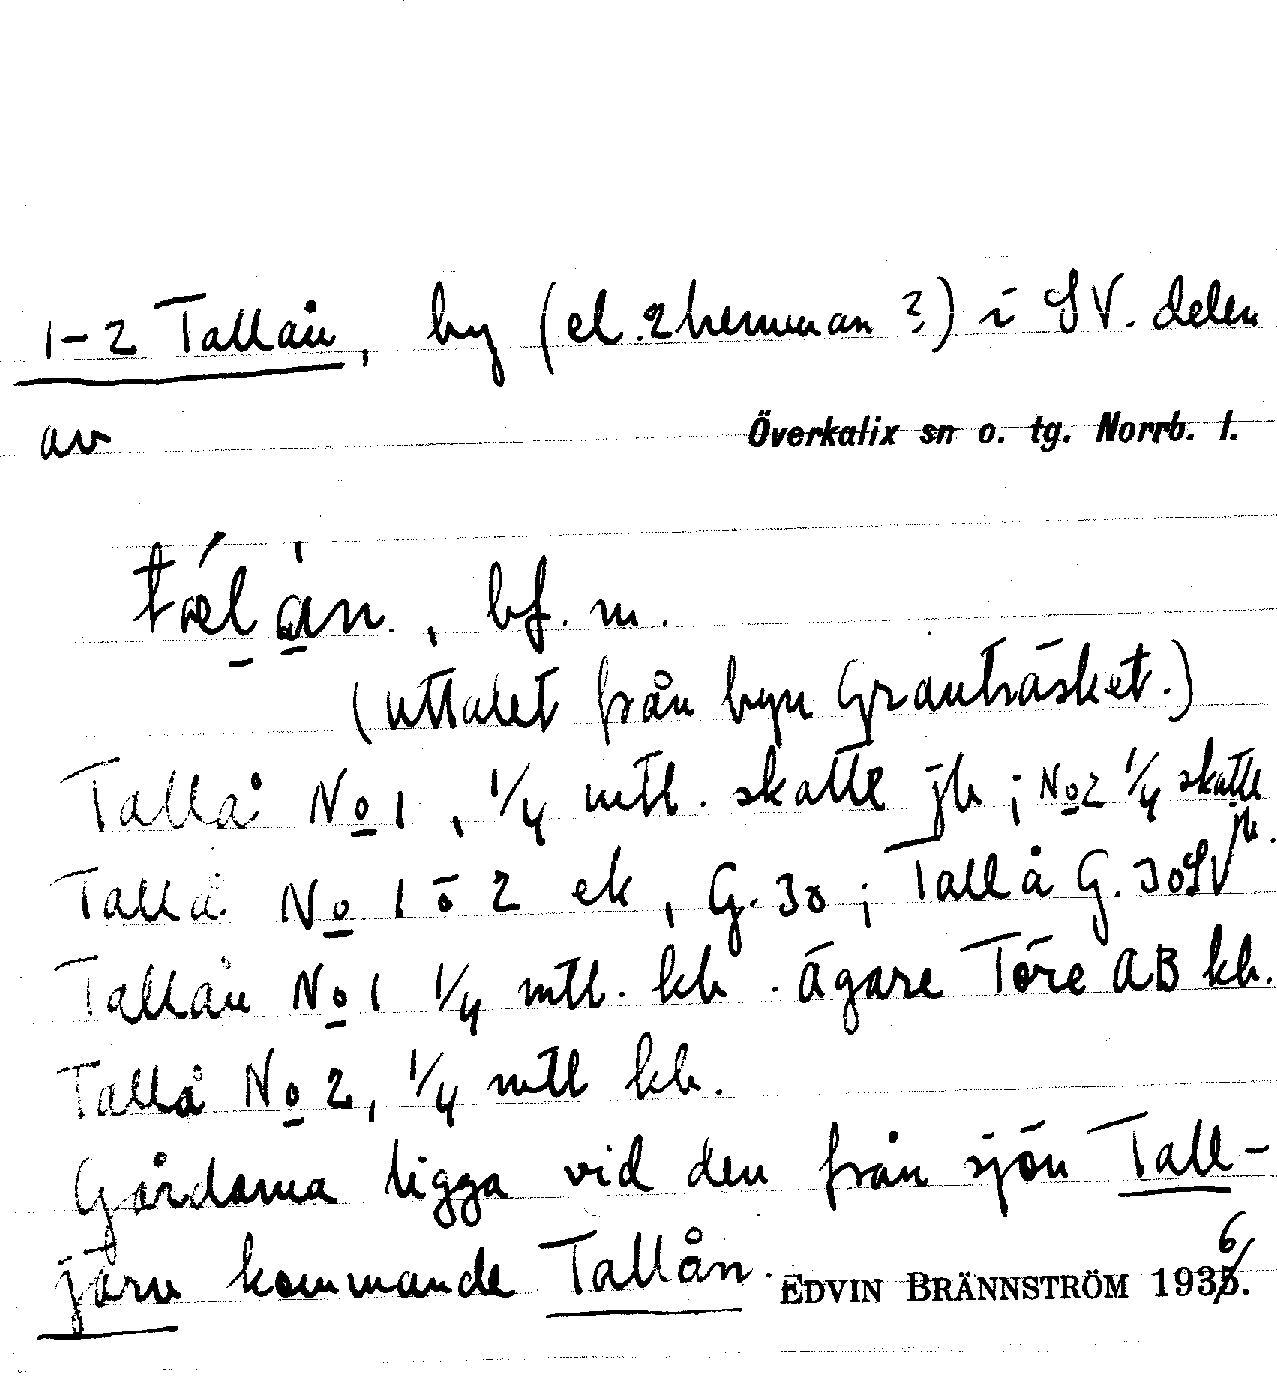 1-2 Tallån, by (el. 2 hemman?) i SV. delen
av Överkalix sn o. tg. Norrb. l.
bf. m.
(uttalet från byn Granträsket.)
Tallå No 1, 1/4 mtl. skatte jb; No 2 1/4 skatte jb.
Tallå No 1 o 2 ek, G. 30; Tallå G. 30SV
Tallån No 1 1/4 mtl. kb. Ägare Töre AB kb.
Tallå No 2, 1/4 mtl kb.
Gårdarna ligga vid den från sjön Tall-
järv kommande Tallån. EDVIN BRÄNNSTRÖM 1936.